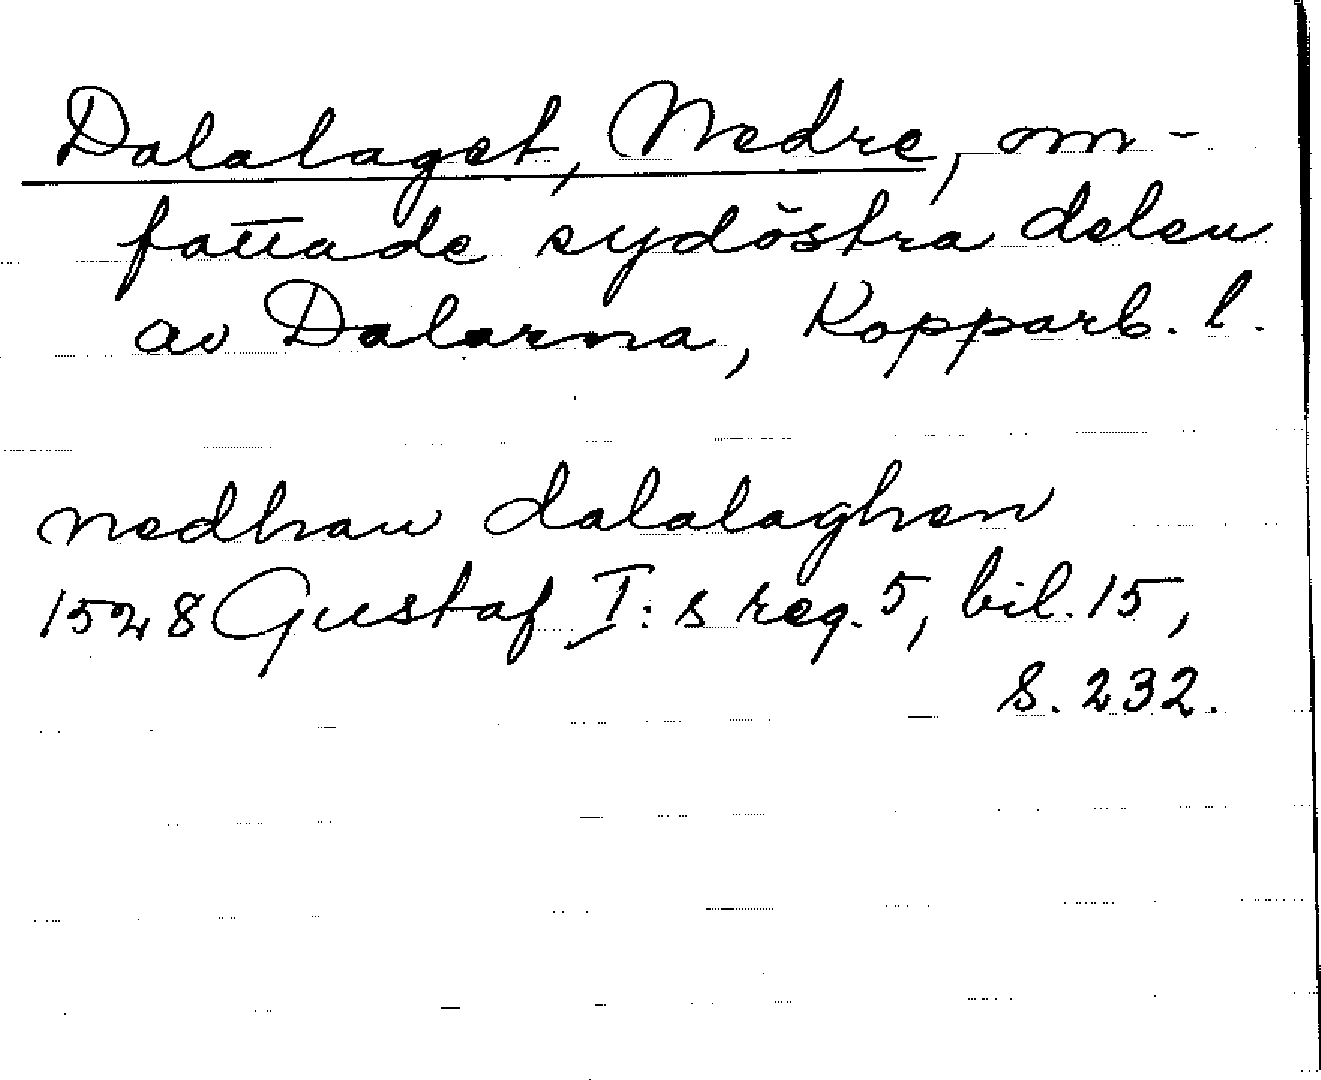 Dalalaget, Nedre, om-
fattade sydöstra delen
av Dalarna, Kopparb. l.
nedhan dalalaghen
1528 Gustaf I:s reg. 5, bil. 15,
s. 232.